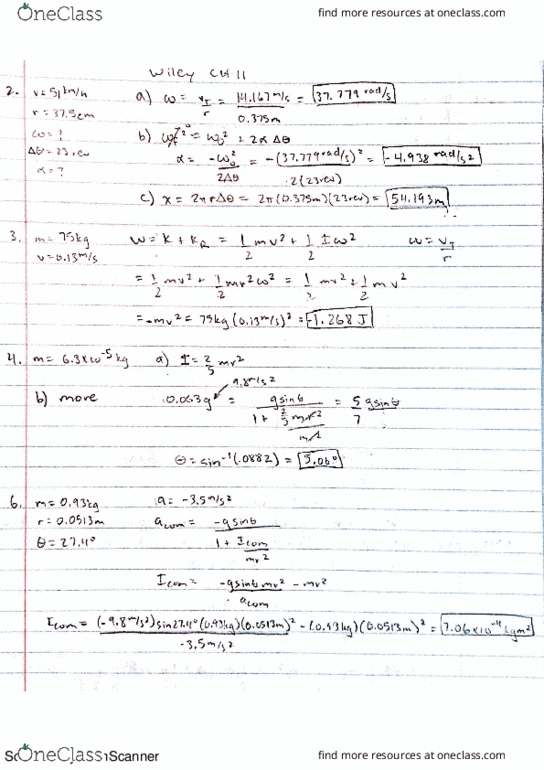 OneClass
find more resources at oneclass.com
Wiley CH 11
2. v = 51 km/h a) ω = v_T/r = 14.167 m/s / 0.375m = 37.779 rad/s
r = 37.5cm
ω = ? b) ω_f² = ω_0² + 2α Δθ
Δθ = 23 rev α = -ω_0²/2Δθ = -(37.779 rad/s)²/2(23rev) = -4.938 rad/s²
α = ?
c) x = 2πrΔθ = 2π(0.375m)(23rev) = 54.193m
3. m = 75kg W = K + K_R = 1/2 mv² + 1/2 Iω² ω = v_T/r
v = 0.13m/s
= 1/2 mv² + 1/2 mr²ω² = 1/2 mv² + 1/2 mv²
= -mv² = 75kg (0.13m/s)² = -1.268 J
4. m = 6.3x10⁻⁵ kg a) I = 2/5 mr²
9.8m/s²
b) move 0.063g = gsinθ / 1 + 2/5 mr²/mr² = 5/7 gsinθ
θ = sin⁻¹(.0882) = 5.06°
6. m = 0.93kg a = -3.5m/s²
r = 0.0513m a_com = -gsinθ / 1 + I_com/mr²
θ = 27.4°
I_com = -gsinθmr²/a_com - mr²
I_com = (-9.8m/s²)sin27.4°(0.93kg)(0.0513m)²/-3.5m/s² - (0.93kg)(0.0513m)² = 7.06x10⁻⁴ kgm²
OneClass
Scanner
find more resources at oneclass.com